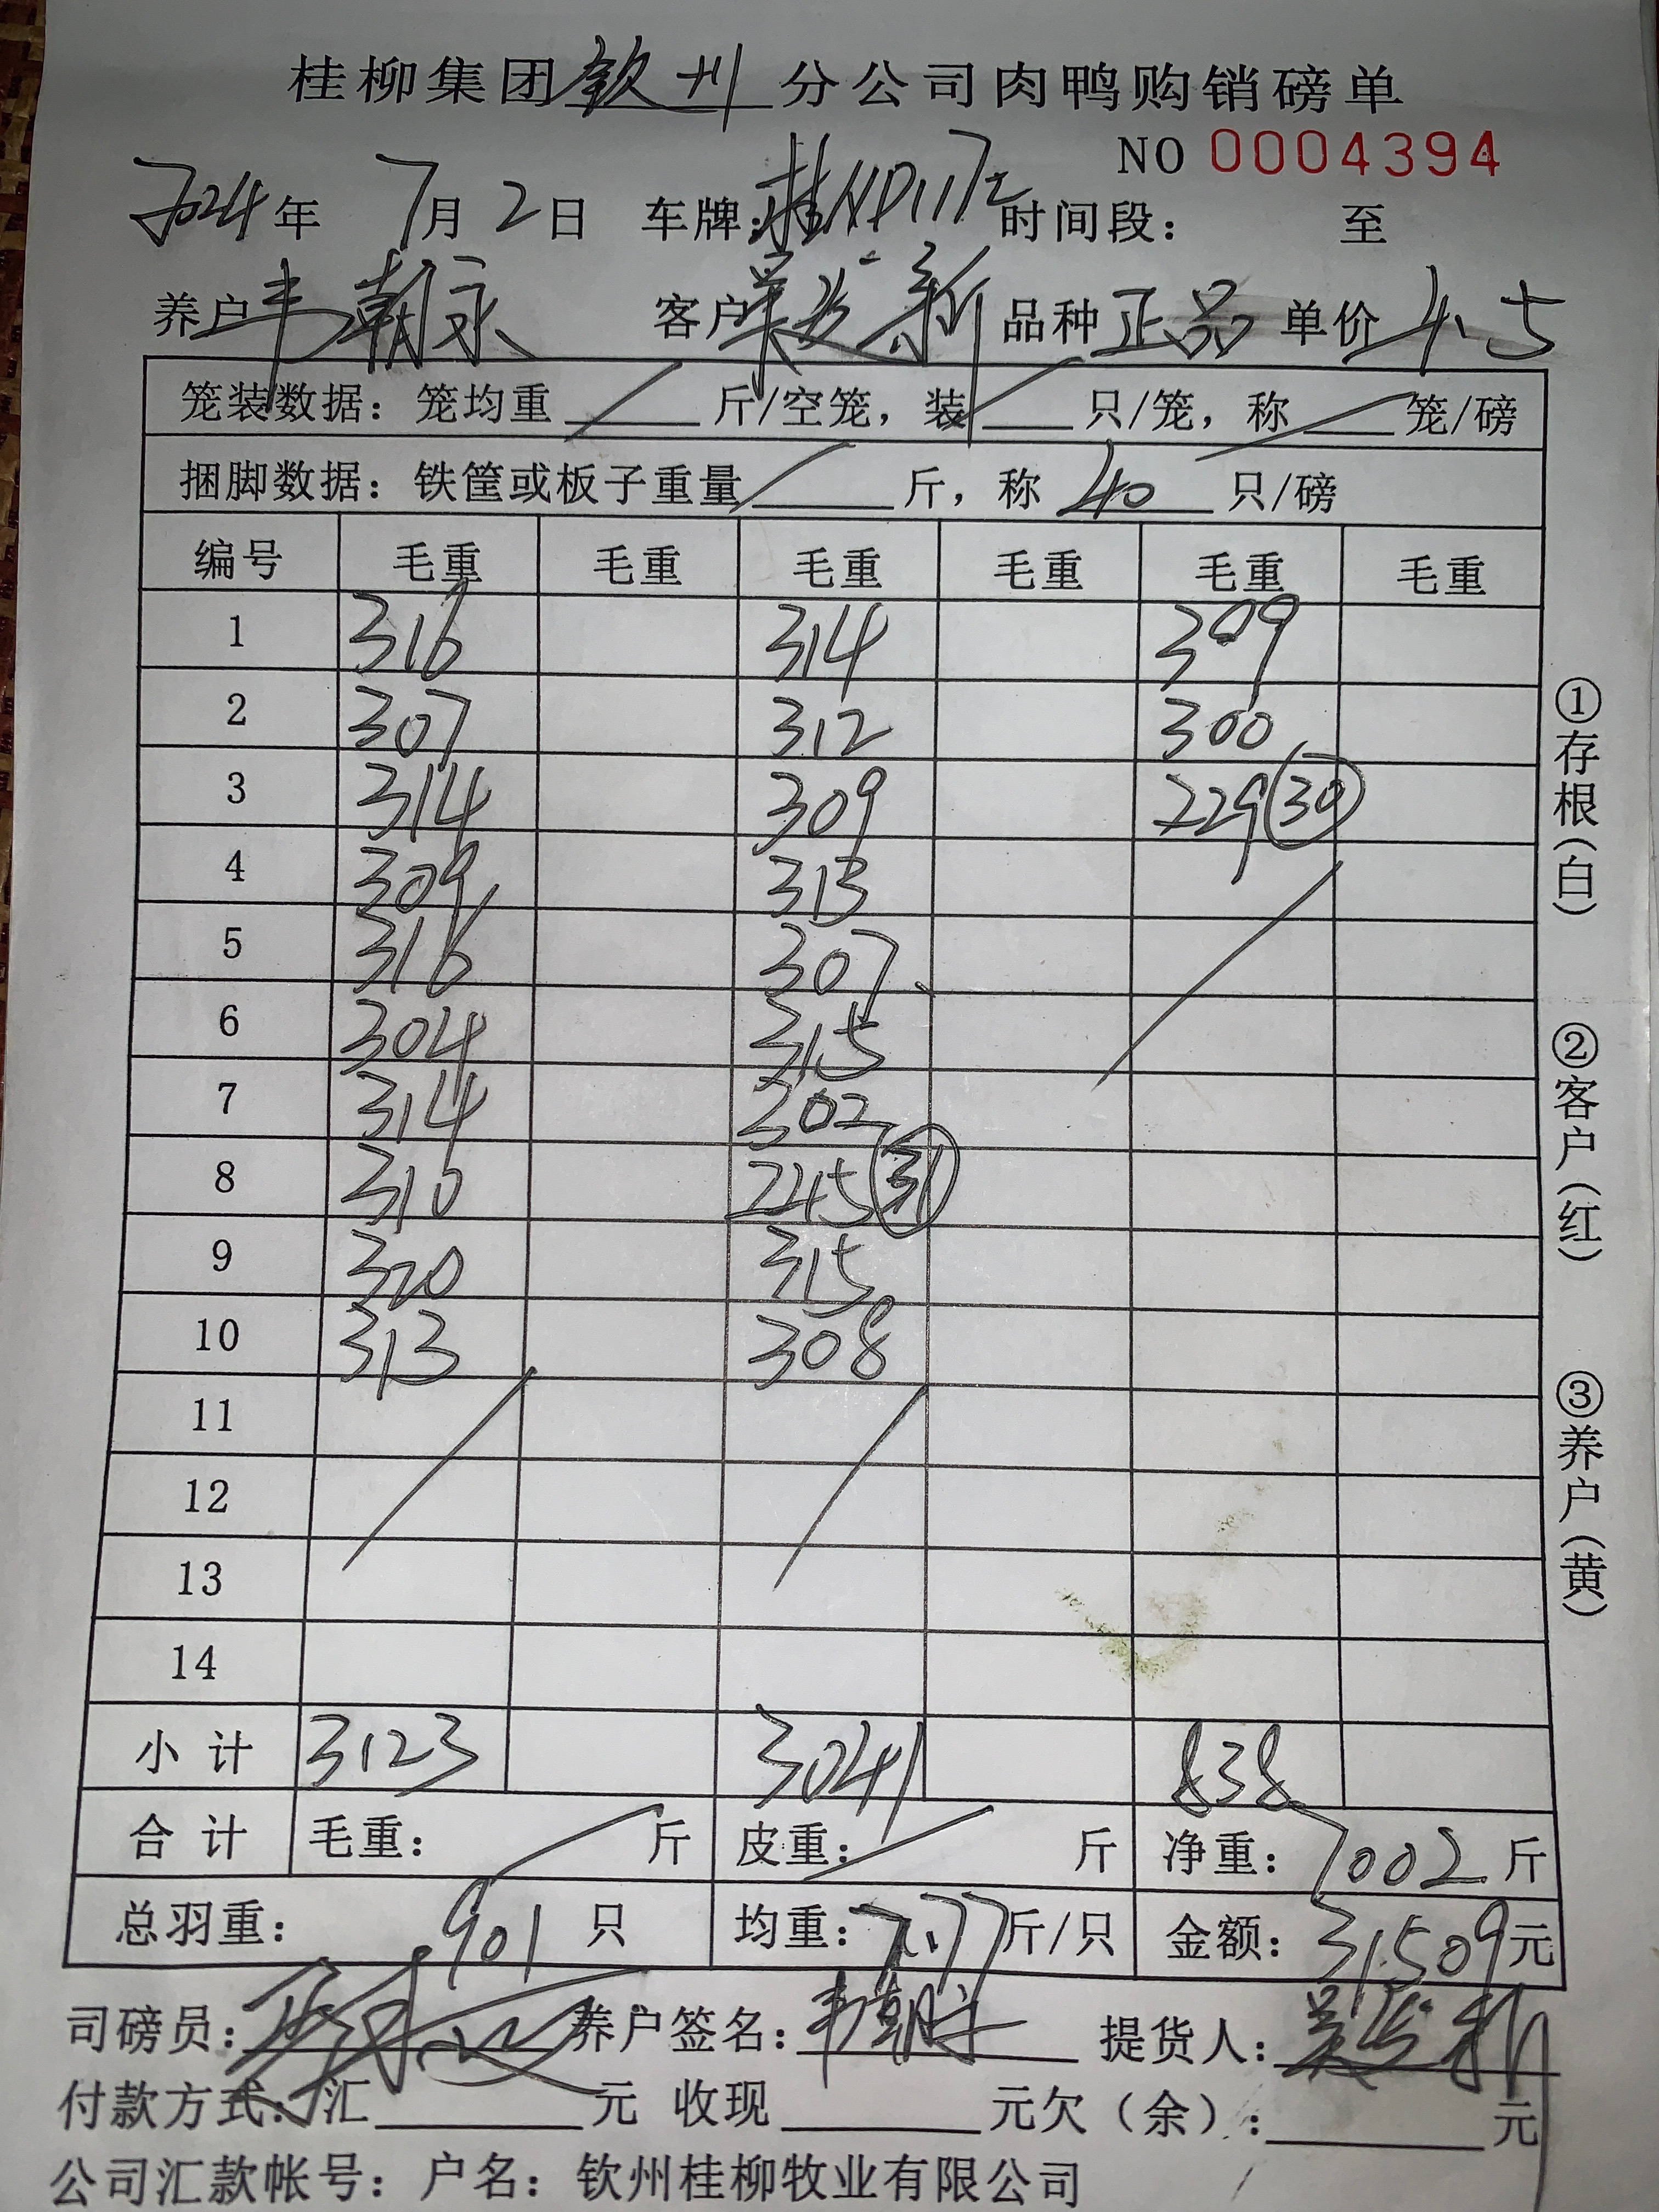 桂柳集团钦州分公司肉鸭购销磅单
NO 0004394
2024年 7月 2日 车牌: 时间段: 至
养户韦朝永 客户吴发新 品种正品 单价4.5
笼装数据: 笼均重 斤/空笼, 装 只/笼, 称 笼/磅
捆脚数据: 铁筐或板子重量 斤, 称 40 只/磅
编号 毛重 毛重 毛重 毛重 毛重 毛重
1 316 314 309
2 307 312 300
3 314 309 229 (30)
4 309 313
5 316 307
6 304 315
7 314 302
8 310 245 (31)
9 320 315
10 313 308
11
12
13
14
小计 3123 3041 838
合计 毛重: 斤 皮重: 斤 净重: 7002斤
总羽重: 901 只 均重: 7.77斤/只 金额: 31509元
司磅员: 养户签名: 韦朝永 提货人: 吴发新
付款方式: 汇 元 收现 元欠(余): 元
公司汇款帐号: 户名: 钦州桂柳牧业有限公司
①存根(白)
②客户(红)
③养户(黄)